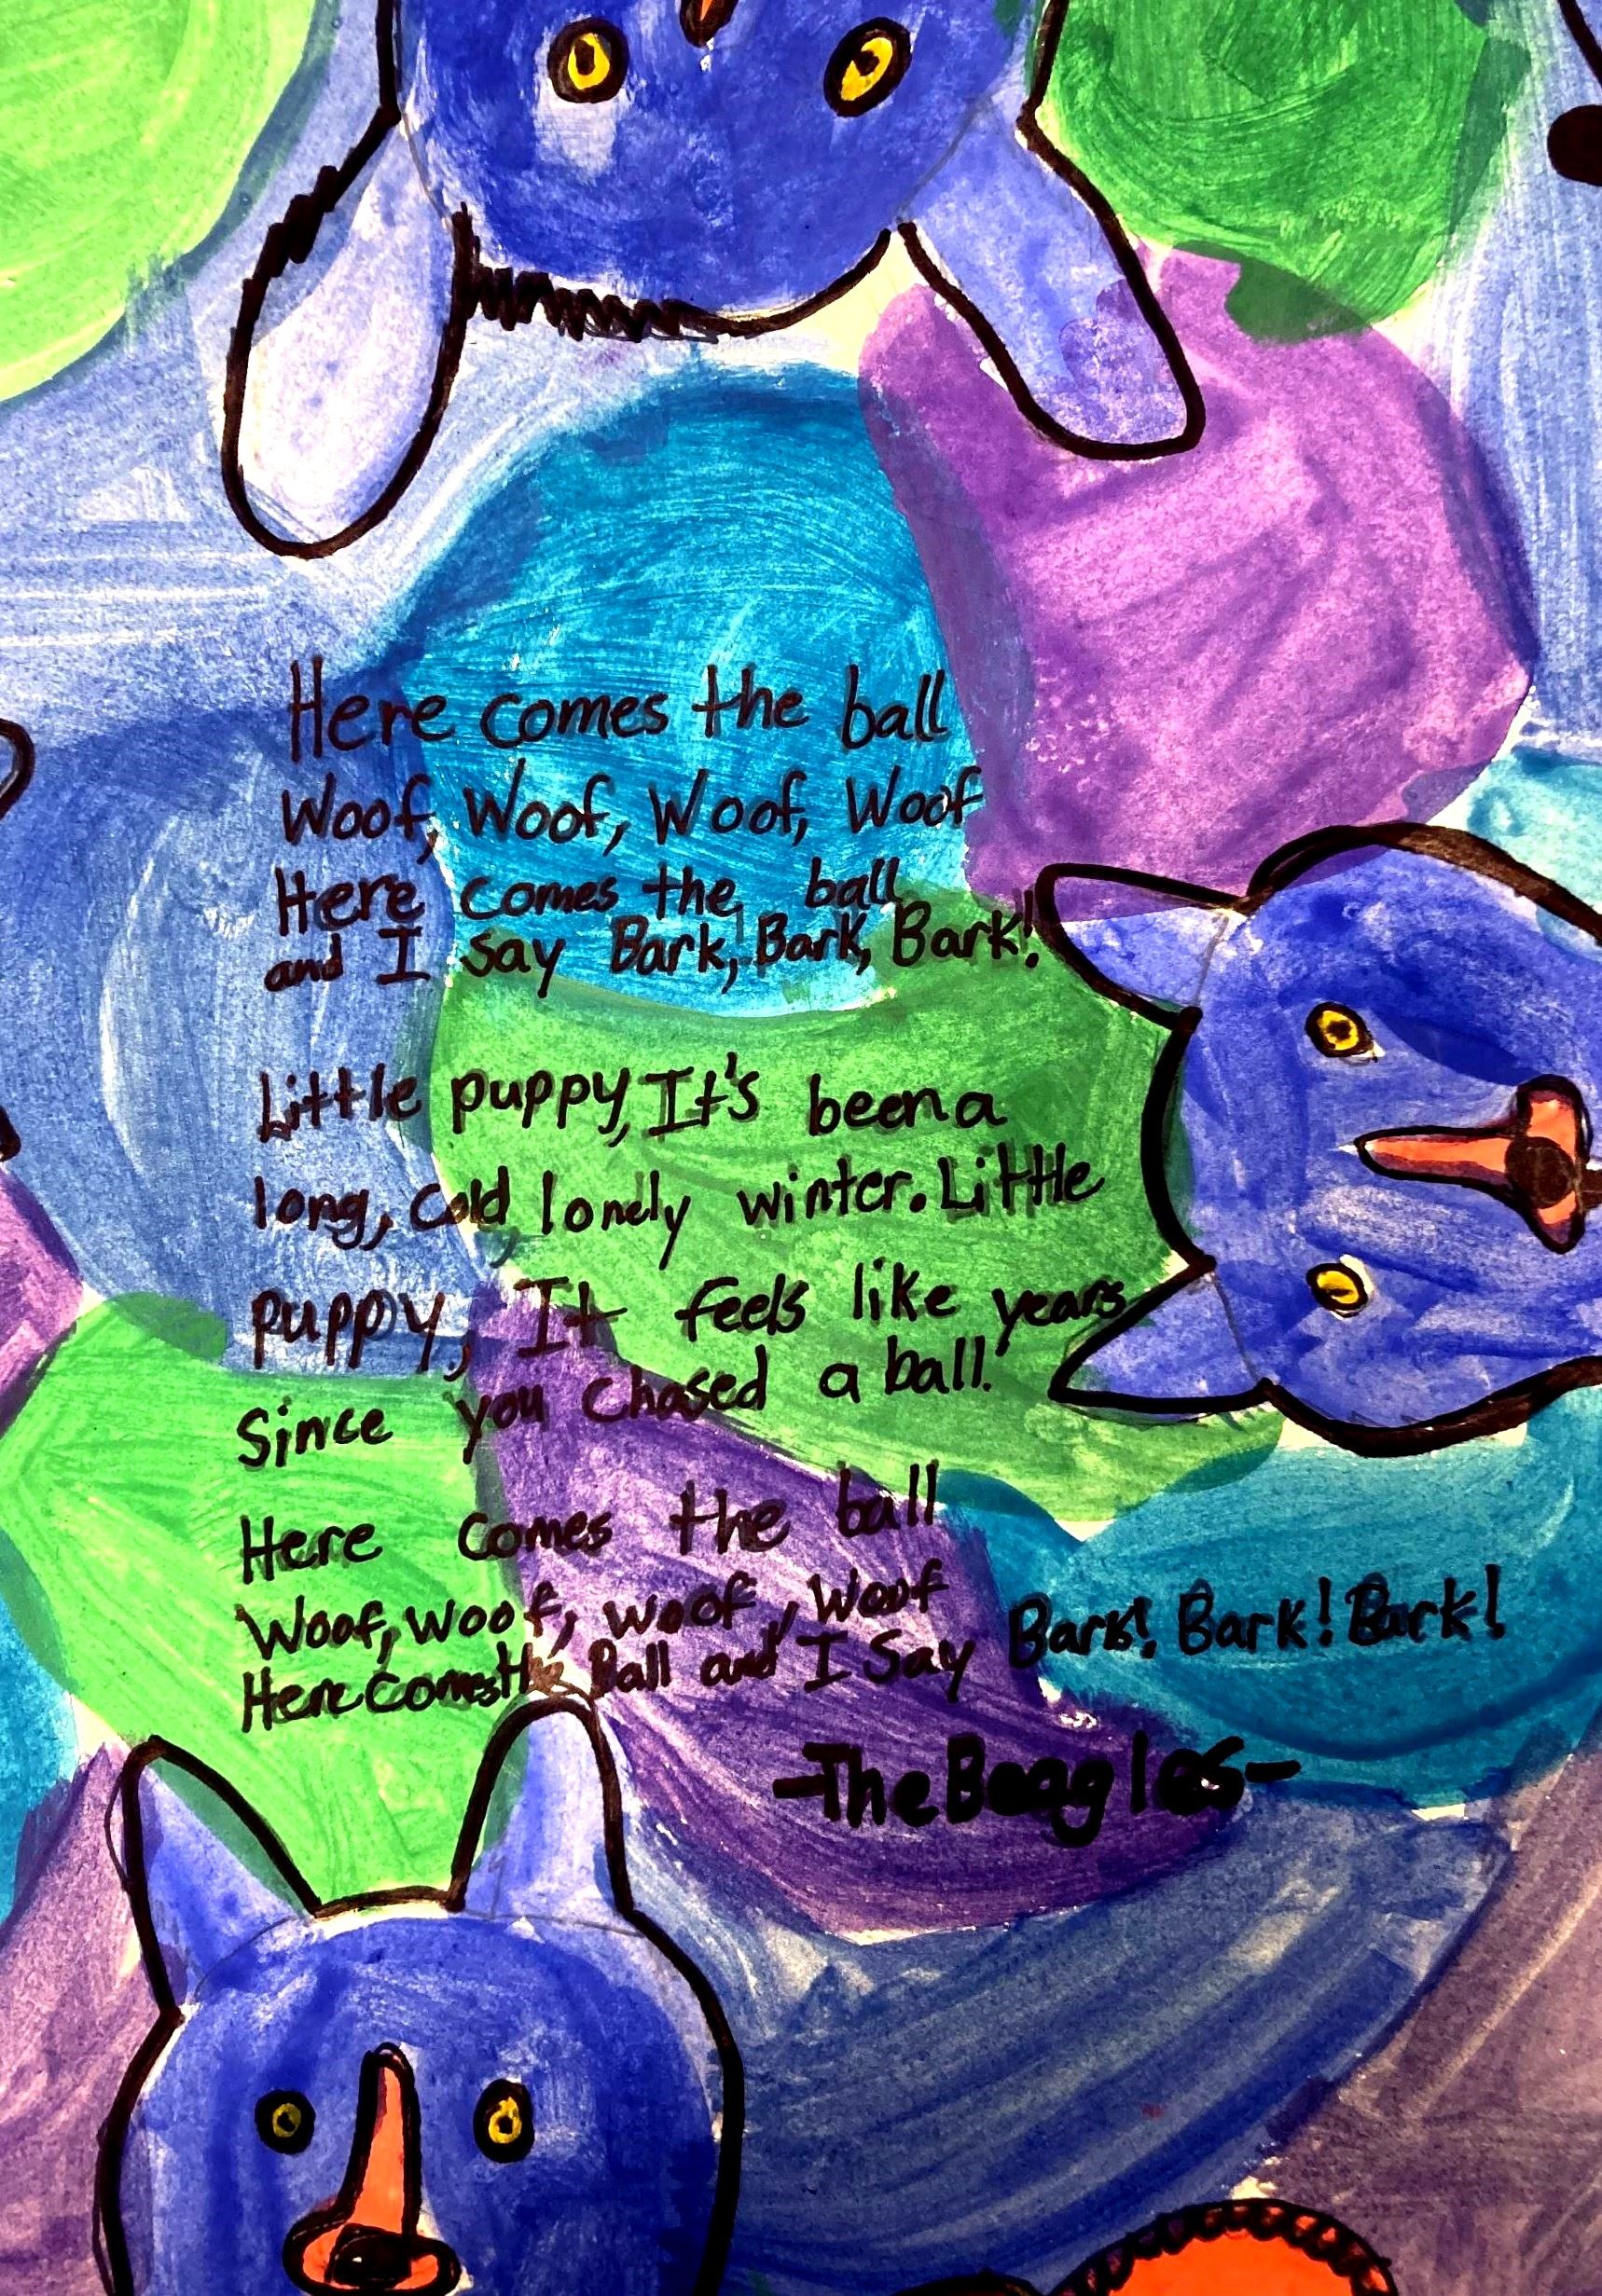 Here comes the ball
Woof, Woof, Woof, Woof
Here comes the ball
and I say Bark, Bark, Bark!
Little puppy, It's been a
long, cold, lonely winter. Little
puppy, It feels like years
Since you chased a ball.
Here comes the ball
Woof, woof, woof, Woof
Here comes the Ball and I Say Bark! Bark! Bark!
-The Beagles-